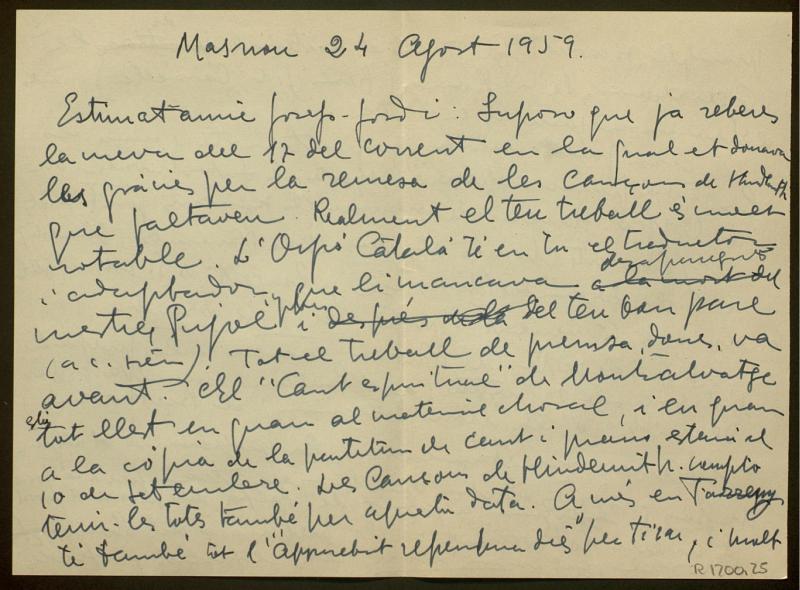 Masnou 24 Agost 1959.
Estimat amic Josep-Jordi: Suposo que ja reberes
la meva del 17 del corrent en la qual et donava
les gràcies per la remesa de les cançons de Hindemith
que faltaven. Realment el teu treball és molt
notable. L'Orfeó Català té en tu el traductor
i adaptador, que li mancava desaparegués a la mort del
mestre Pujol i després de la del teu bon pare
(a.c. sien). Tot el treball de premsa, doncs, va
avant. El "Cant espiritual" de Montsalvatge
està tot llest en quan al material choral, i en quan
a la còpia de la partitura de cant i piano estarà el
10 de Setembre. Les Cançons de Hindemith compto
tenir-les totes també per aquella data. A més en
té també tot l'"Apparebit repentina dies" per tirar, i molt
R.1700,25